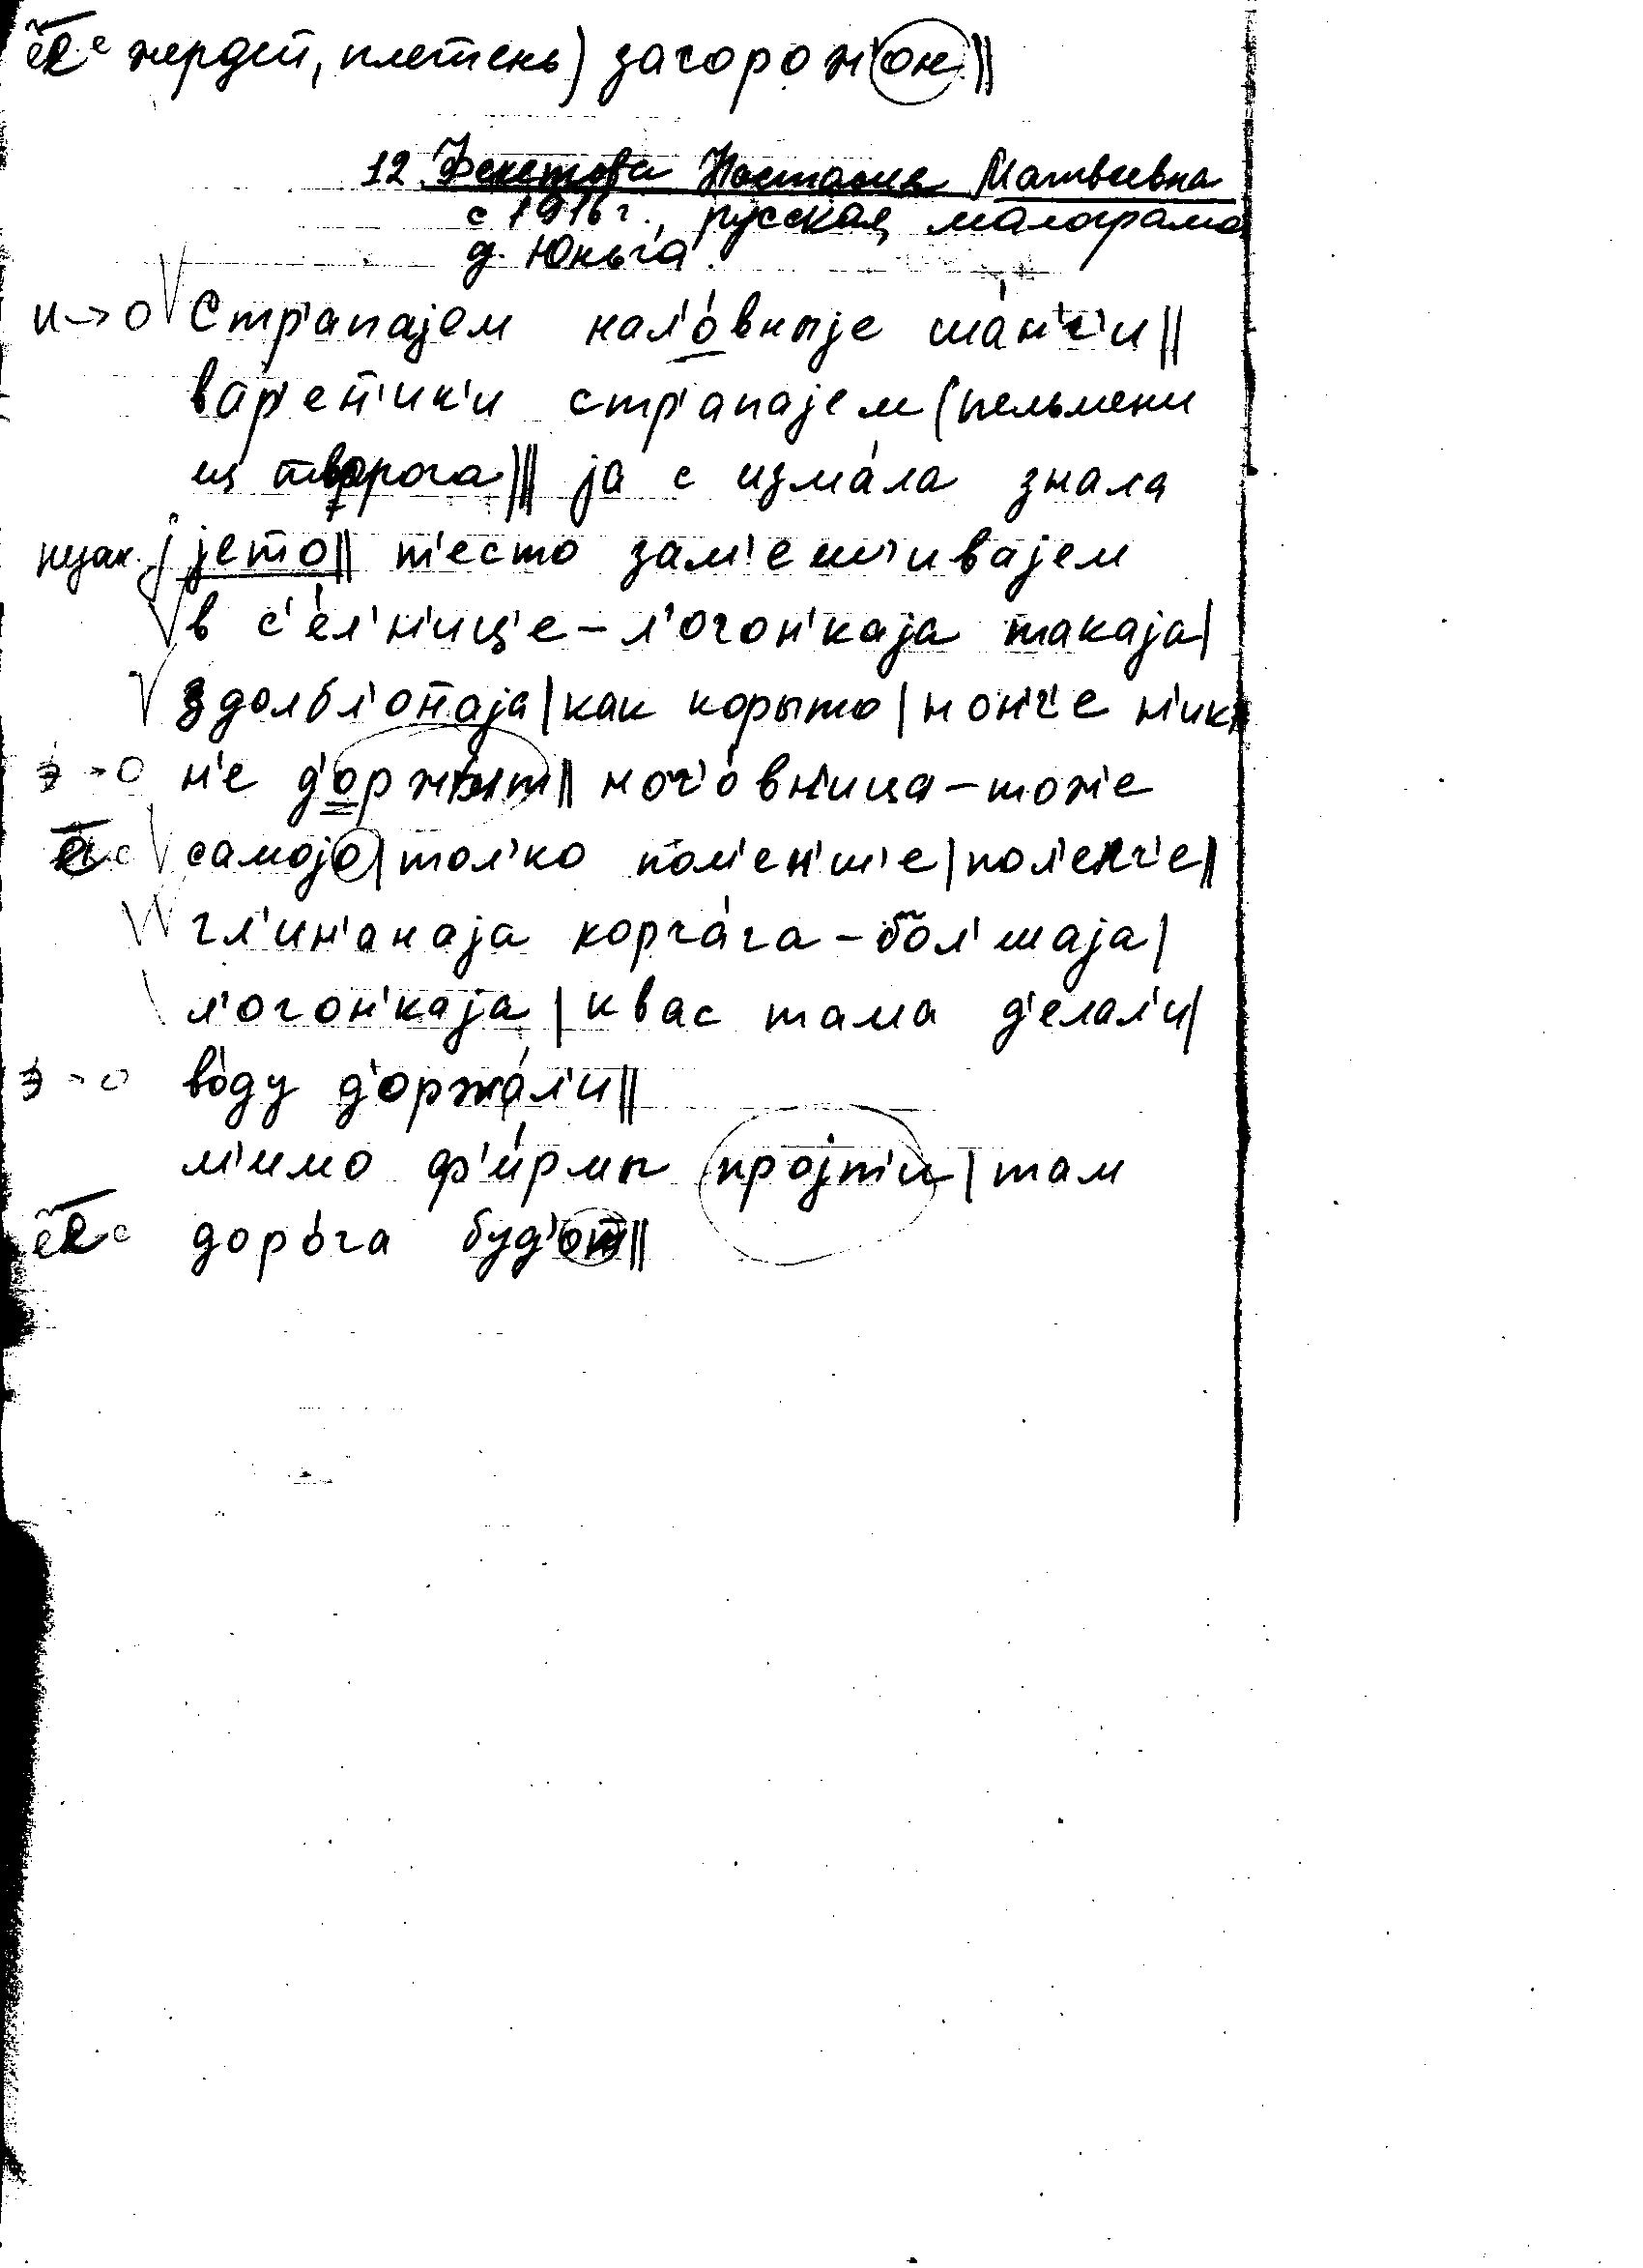 жердей, плетень) загорож'он ||
12. Фекетова Настасия Матвеевна
с 1916 г., русская, малограмо
д. Юньга.
и→о Стр'апајем нал'óвныје шáн'г'и ||
вар'ен'ик'и стр'апајем (пельмени
из творога) || ја с измáла знала
јето || т'есто зам'ешч'ивајем
в с'éл'н'иц'е – л'огон'каја такаја |
здолбл'онаја | как корыто | нон'ч'е н'ик
э→о н'е д'оржыт || ноч'óвн'ица – тож'е
самојо | тол'ко пом'ен'ш'е | пол'екч'е ||
гл'ин'анаја корчáга – бол'шаја |
л'огон'каја | квас тама д'елал'и |
э→о вóду д'оржáл'и ||
м'имо ф'и́рмы пројт'и | там
дорóга буд'от ||